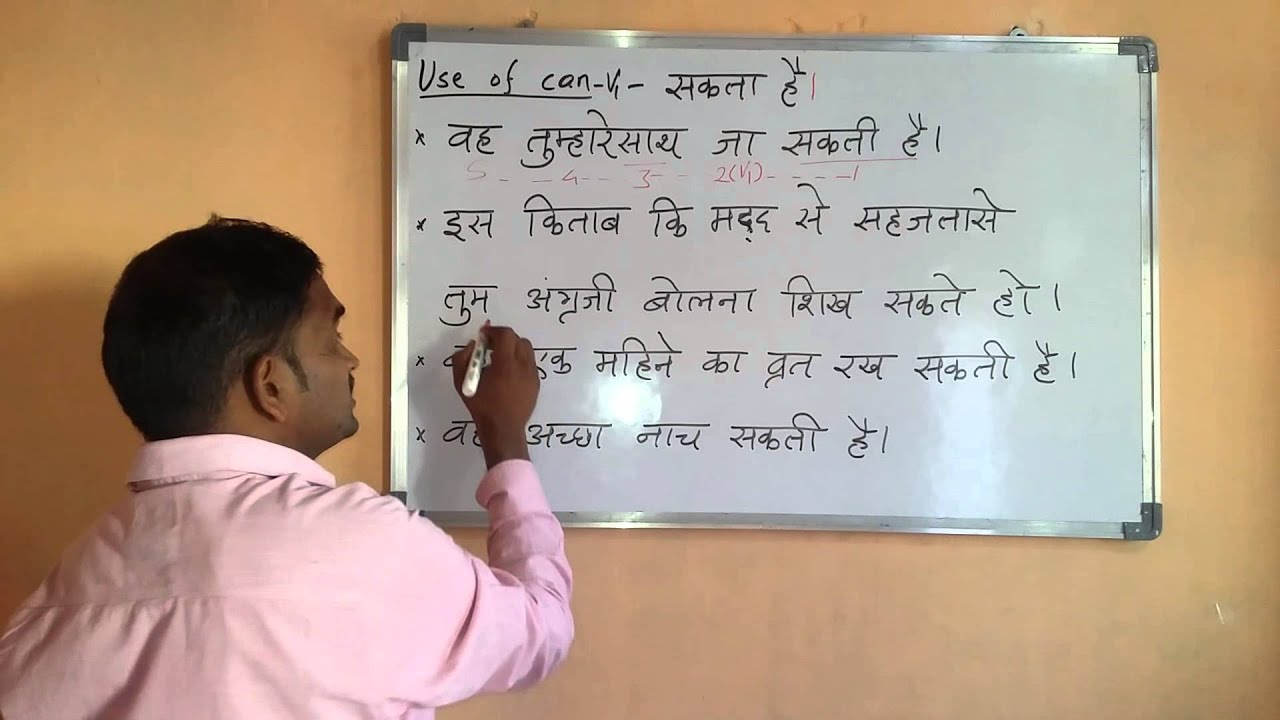 Use of can-V₁- सकता है।
* वह तुम्हारेसाथ जा सकती है।
5 - - 4 - - 3 - - 2(V₁) - - - - 1
* इस किताब कि मद्द्द से सहजतासे
तुम अंग्रजी बोलना शिख सकते हो।
* एक महिने का व्रत रख सकती है।
* वह अच्छा नाच सकती है।